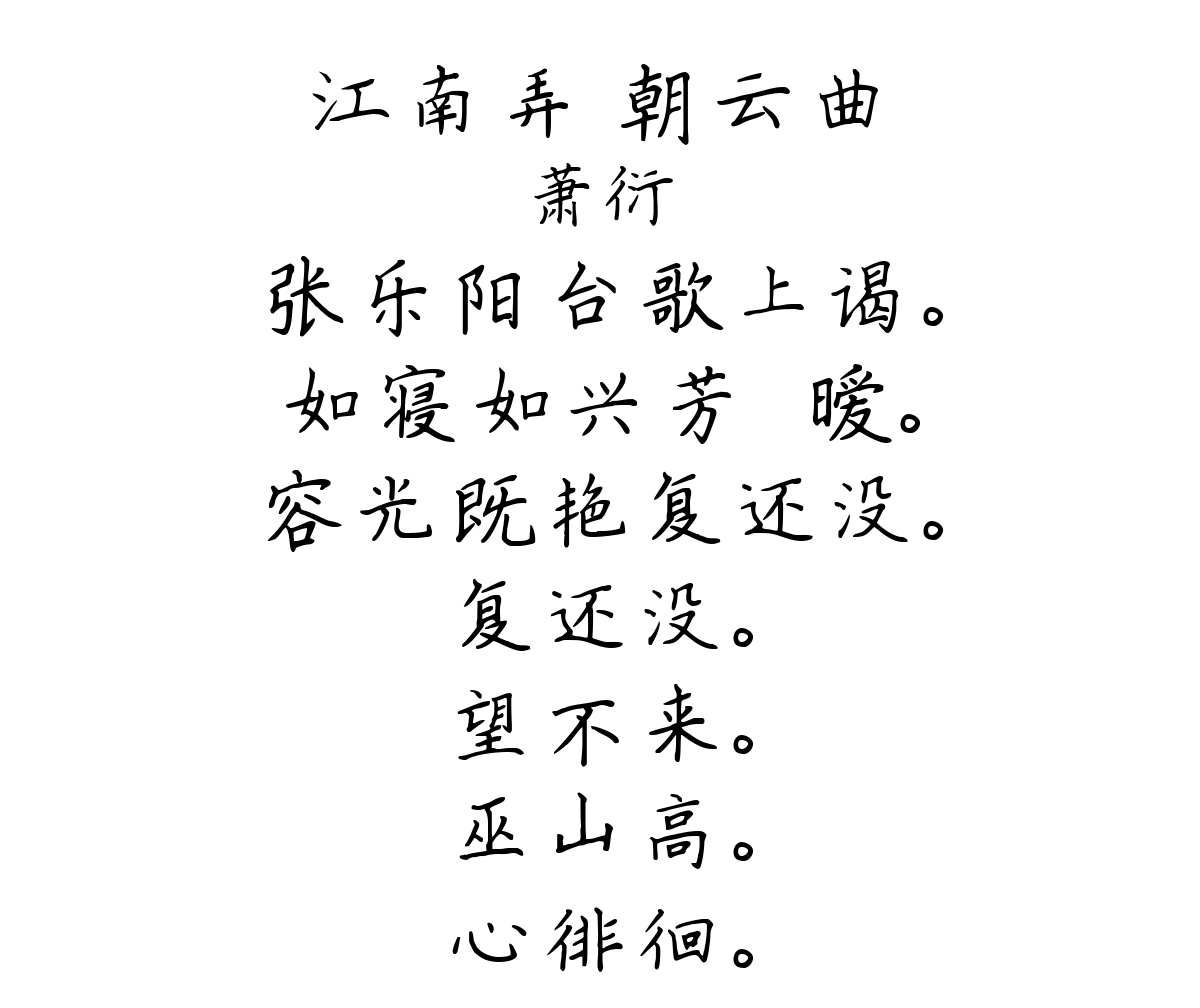 江南弄 朝云曲
萧衍
张乐阳台歌上谒。
如寝如兴芳 暧。
容光既艳复还没。
复还没。
望不来。
巫山高。
心徘徊。